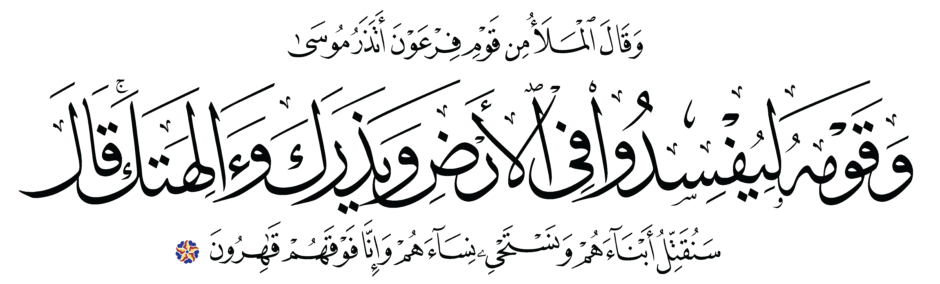 وَقَالَ ٱلْمَلَأُ مِن قَوْمِ فِرْعَوْنَ أَتَذَرُ مُوسَىٰ
وَقَوْمَهُۥ لِيُفْسِدُوا۟ فِى ٱلْأَرْضِ وَيَذَرَكَ وَءَالِهَتَكَ ۚ قَالَ
سَنُقَتِّلُ أَبْنَآءَهُمْ وَنَسْتَحْىِۦ نِسَآءَهُمْ وَإِنَّا فَوْقَهُمْ قَٰهِرُونَ